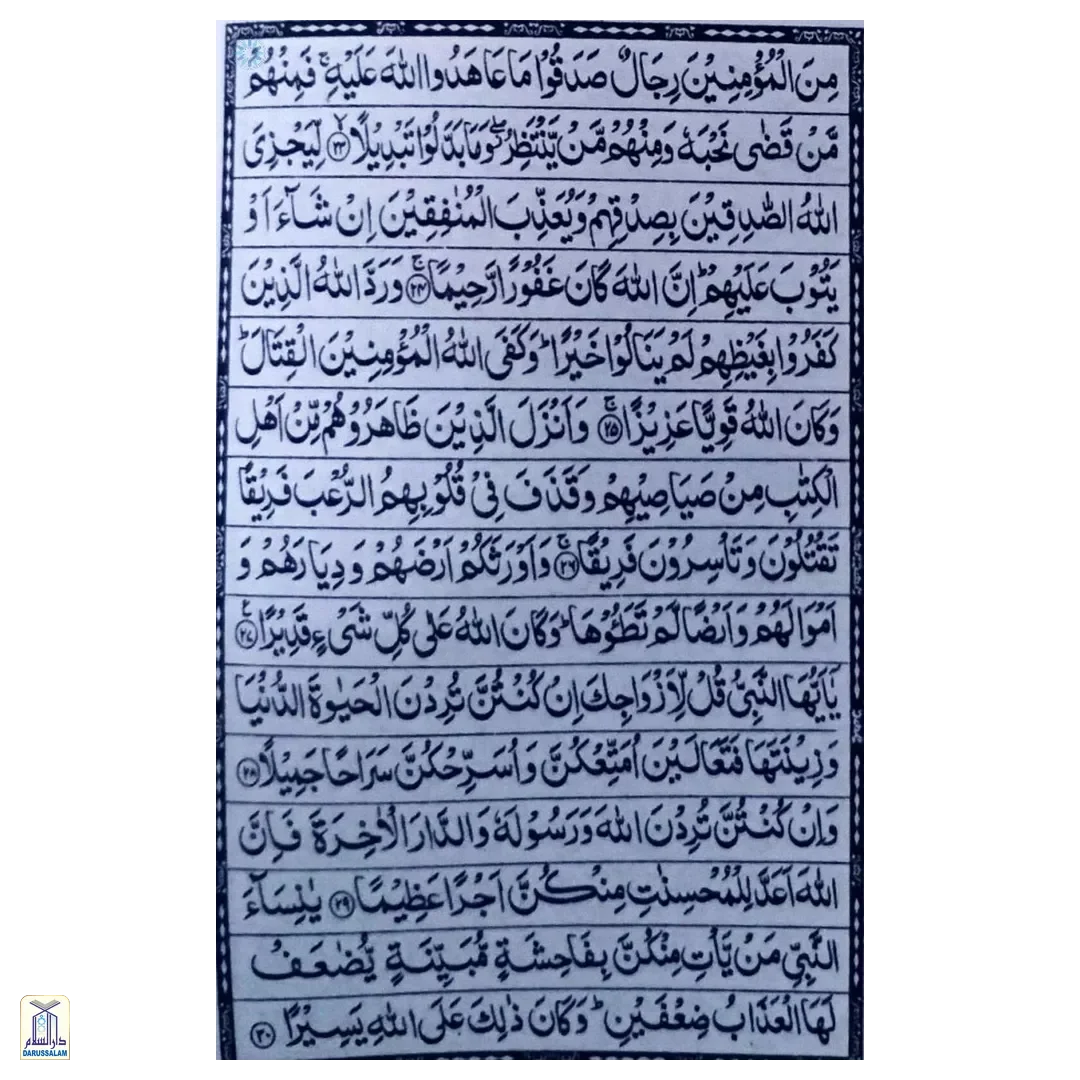 مِنَ الْمُؤْمِنِيْنَ رِجَالٌ صَدَقُوْا مَا عَاهَدُوا اللّٰهَ عَلَيْهِ ۚ فَمِنْهُمْ
مَّنْ قَضٰى نَحْبَهٗ وَمِنْهُمْ مَّنْ يَّنْتَظِرُ ۖ وَمَا بَدَّلُوْا تَبْدِيْلًا ۙ﴿۲۳﴾ لِّيَجْزِيَ
اللّٰهُ الصّٰدِقِيْنَ بِصِدْقِهِمْ وَيُعَذِّبَ الْمُنٰفِقِيْنَ اِنْ شَآءَ اَوْ
يَتُوْبَ عَلَيْهِمْ ؕ اِنَّ اللّٰهَ كَانَ غَفُوْرًا رَّحِيْمًا ۚ﴿۲۴﴾ وَرَدَّ اللّٰهُ الَّذِيْنَ
كَفَرُوْا بِغَيْظِهِمْ لَمْ يَنَالُوْا خَيْرًا ؕ وَكَفَى اللّٰهُ الْمُؤْمِنِيْنَ الْقِتَالَ ؕ
وَكَانَ اللّٰهُ قَوِيًّا عَزِيْزًا ۚ﴿۲۵﴾ وَاَنْزَلَ الَّذِيْنَ ظَاهَرُوْهُمْ مِّنْ اَهْلِ
الْكِتٰبِ مِنْ صَيَاصِيْهِمْ وَقَذَفَ فِيْ قُلُوْبِهِمُ الرُّعْبَ فَرِيْقًا
تَقْتُلُوْنَ وَتَاْسِرُوْنَ فَرِيْقًا ۚ﴿۲۶﴾ وَاَوْرَثَكُمْ اَرْضَهُمْ وَدِيَارَهُمْ وَ
اَمْوَالَهُمْ وَاَرْضًا لَّمْ تَطَـُٔوْهَا ؕ وَكَانَ اللّٰهُ عَلٰى كُلِّ شَيْءٍ قَدِيْرًا ﴿۲۷﴾ ع
يٰۤاَيُّهَا النَّبِيُّ قُلْ لِّاَزْوَاجِكَ اِنْ كُنْتُنَّ تُرِدْنَ الْحَيٰوةَ الدُّنْيَا
وَزِيْنَتَهَا فَتَعَالَيْنَ اُمَتِّعْكُنَّ وَاُسَرِّحْكُنَّ سَرَاحًا جَمِيْلًا ﴿۲۸﴾
وَاِنْ كُنْتُنَّ تُرِدْنَ اللّٰهَ وَرَسُوْلَهٗ وَالدَّارَ الْاٰخِرَةَ فَاِنَّ
اللّٰهَ اَعَدَّ لِلْمُحْسِنٰتِ مِنْكُنَّ اَجْرًا عَظِيْمًا ﴿۲۹﴾ يٰنِسَآءَ
النَّبِيِّ مَنْ يَّاْتِ مِنْكُنَّ بِفَاحِشَةٍ مُّبَيِّنَةٍ يُّضٰعَفْ
لَهَا الْعَذَابُ ضِعْفَيْنِ ؕ وَكَانَ ذٰلِكَ عَلَى اللّٰهِ يَسِيْرًا ﴿۳۰﴾
دار السلام
DARUSSALAM